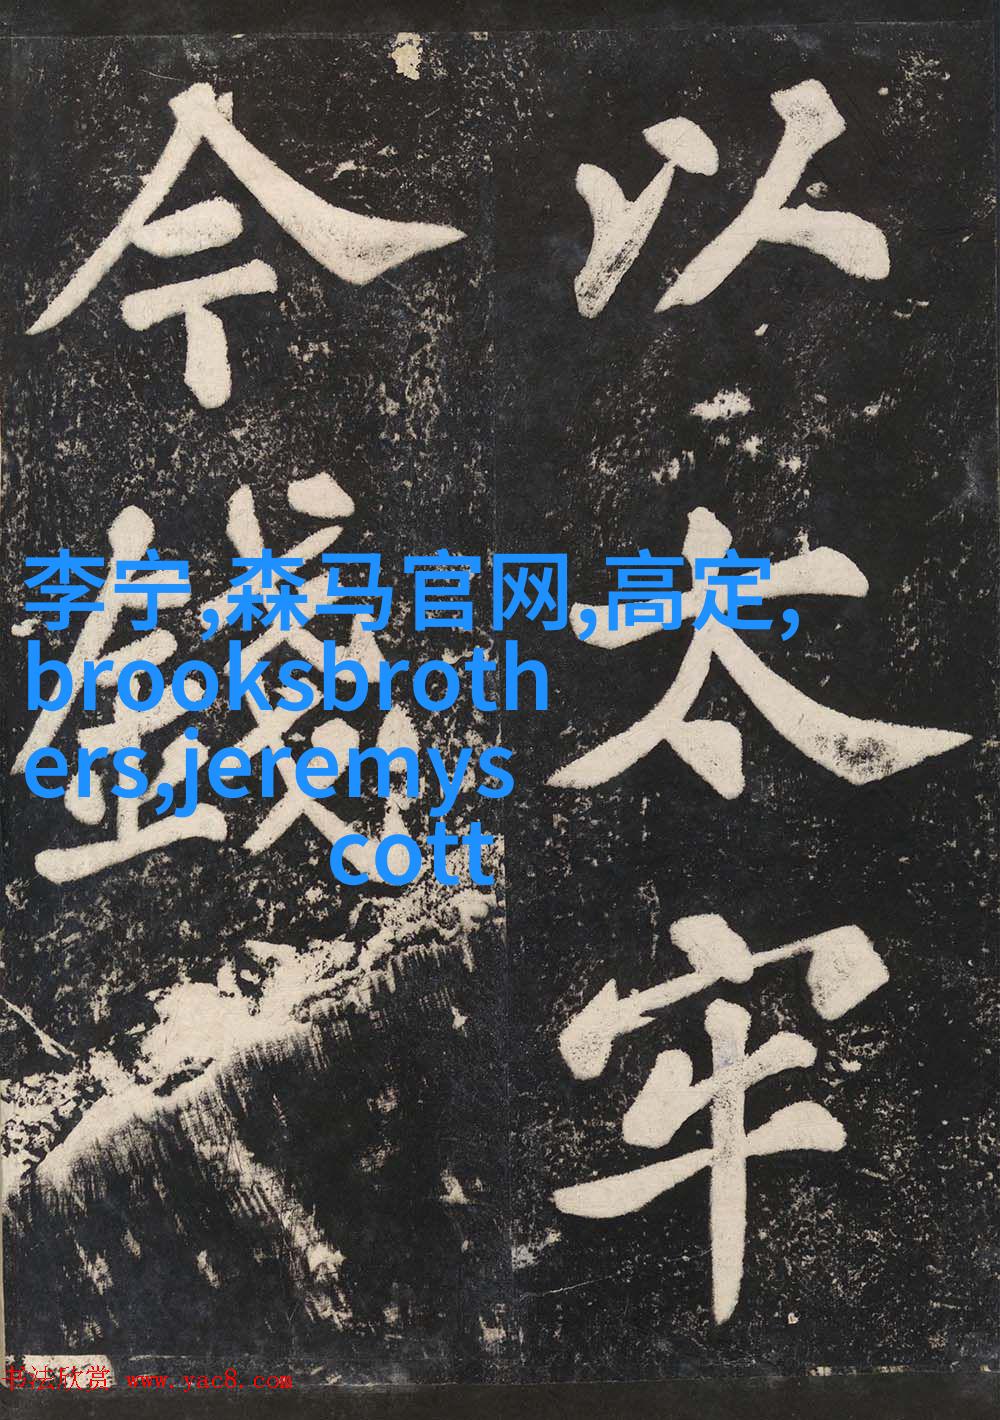 以太牢
今錢
李宁,森马官网,高定,
brooksbroth
ers,jeremys
cott
书法欣赏 www.yac8.com